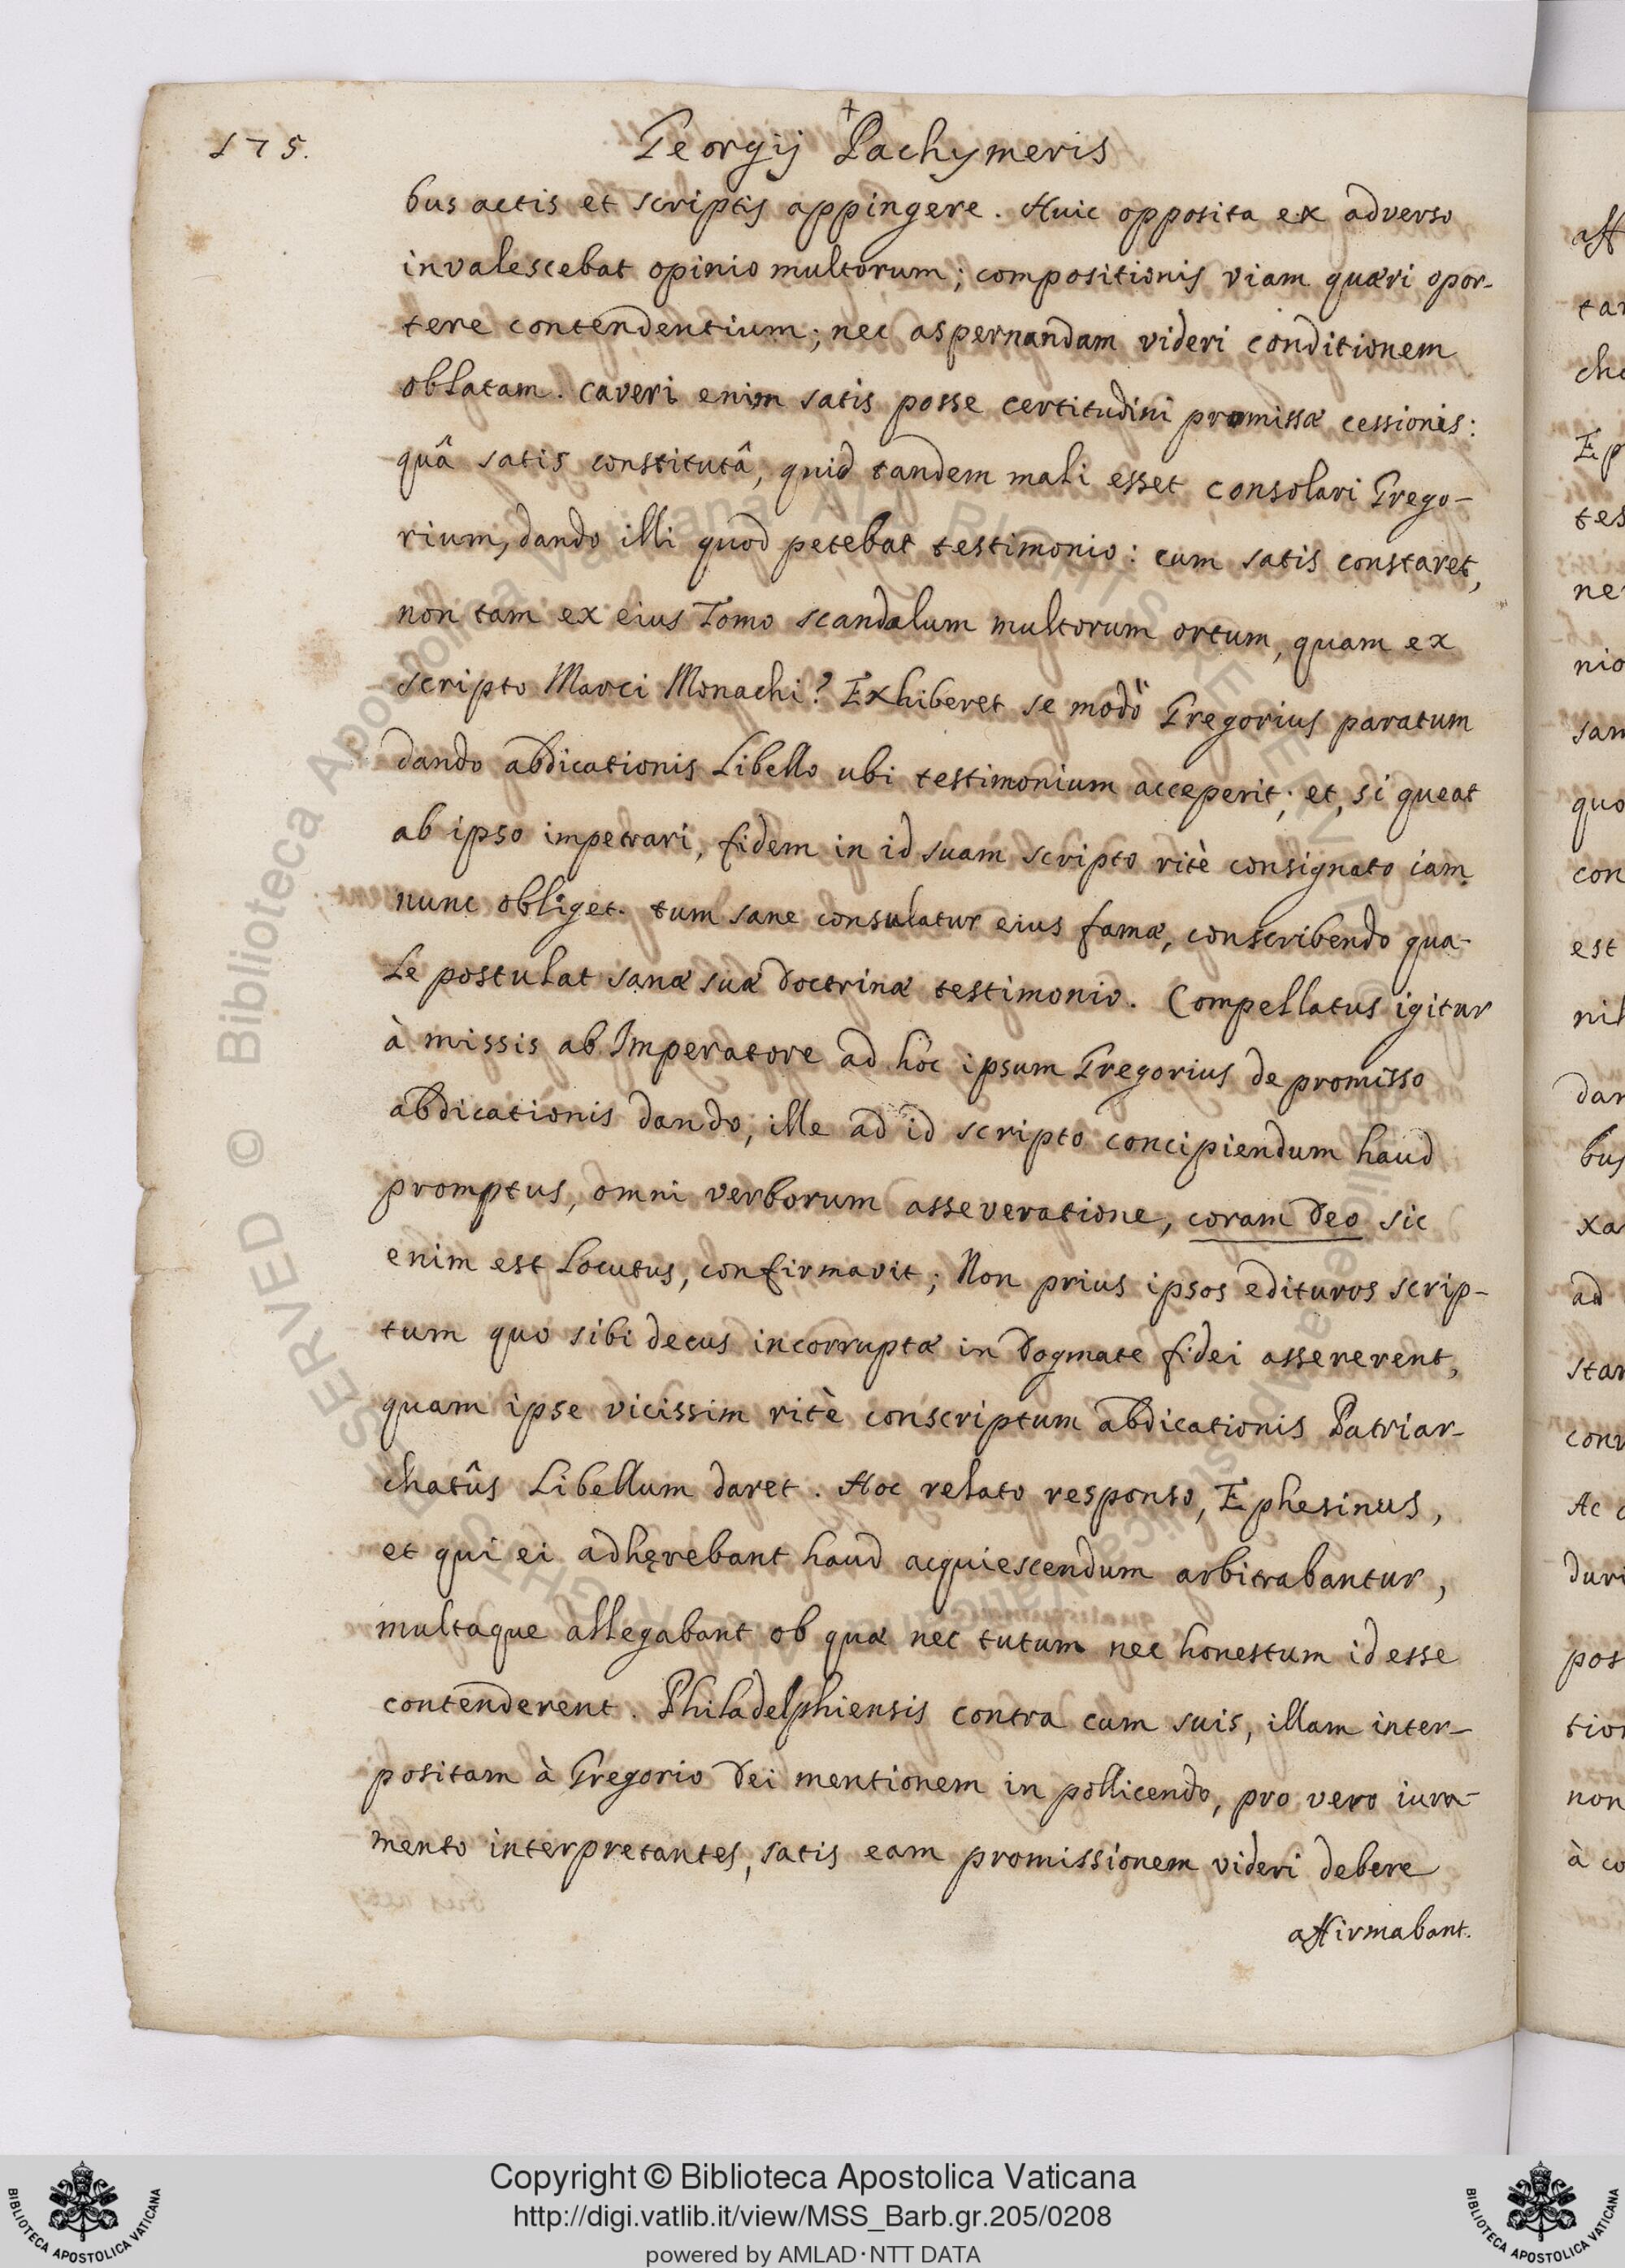 175.
Georgij Pachymeris
bus actis et scriptis appingere. Huic opposita ex adverso
invalescebat opinio multorum; compositionis viam quæri opor-
tere contendentium; nec aspernandam videri conditionem
oblatam. caveri enim satis posse certitudini promissæ cessionis:
quâ satis constitutâ, quid tandem mali esset consolari Grego-
rium, dando illi quod petebat testimonio: cum satis constaret,
non tam ex eius Tomo scandalum multorum ortum, quam ex
scripto Marci Monachi? Exhiberet se modò Gregorius paratum
dando abdicationis Libello ubi testimonium acceperit; et, si queat
ab ipso impetrari, fidem in id suam scripto ritè consignato iam
nunc obliget. tum sane consulatur eius famæ, conscribendo qua-
le postulat sanæ suæ doctrinæ testimonio. Compellatus igitur
à missis ab Imperatore ad hoc ipsum Gregorius de promisso
abdicationis dando, ille ad id scripto concipiendum haud
promptus, omni verborum asseveratione, coram Deo sic
enim est locutus, confirmavit; Non prius ipsos edituros scrip-
tum quo sibi decus incorruptæ in Dogmate fidei assererent,
quam ipse vicissim ritè conscriptum abdicationis Patriar-
chatûs Libellum daret. Hoc relato responso, Ephesinus,
et qui ei adhęrebant haud acquiescendum arbitrabantur,
multaque allegabant ob quæ nec tutum nec honestum id esse
contenderent. Philadelphiensis contra cum suis, illam inter-
positam à Gregorio Dei mentionem in pollicendo, pro vero iura-
mento interpretantes, satis eam promissionem videri debere
affirmabant.
© Biblioteca Apostolica Vaticana ALL RIGHTS RESERVED
Copyright © Biblioteca Apostolica Vaticana
http://digi.vatlib.it/view/MSS_Barb.gr.205/0208
powered by AMLAD·NTT DATA
BIBLIOTECA APOSTOLICA VATICANA
BIBLIOTECA APOSTOLICA VATICANA